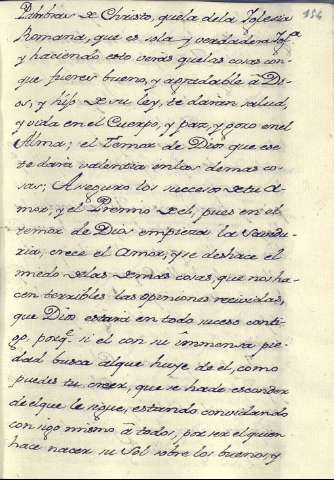 156
Piedras de Christo, que la de la Iglesia
Romana, que es sola y verdadera Igª
y haciendo esto verás que las cosas con
que fueres bueno, y agradable â Di-
os, y hijo de su ley, te darán salud,
y vida en el Cuerpo, y paz, y gozo en el
Alma; el Temor de Dios que ese
te dará valentia en las demas co-
sas; Aseguro los sucesos de tu a-
mor, y el Premio de el, pues en el
temor de Dios empieza la Savidu-
ria, crece el Amor, y se deshace el
miedo de las demas cosas, que nos ha-
cen terribles las opiniones recividas,
que Dios estará en todo suceso conti-
go, porq.e si el con su immensa pie-
dad busca al que huye de el, como
puedes tu creer, que se ha de esconder
de el que le sigue, estando convidando
con sigo mismo â todos, por ser el quien
hace nacer su Sol sobre los buenos, y